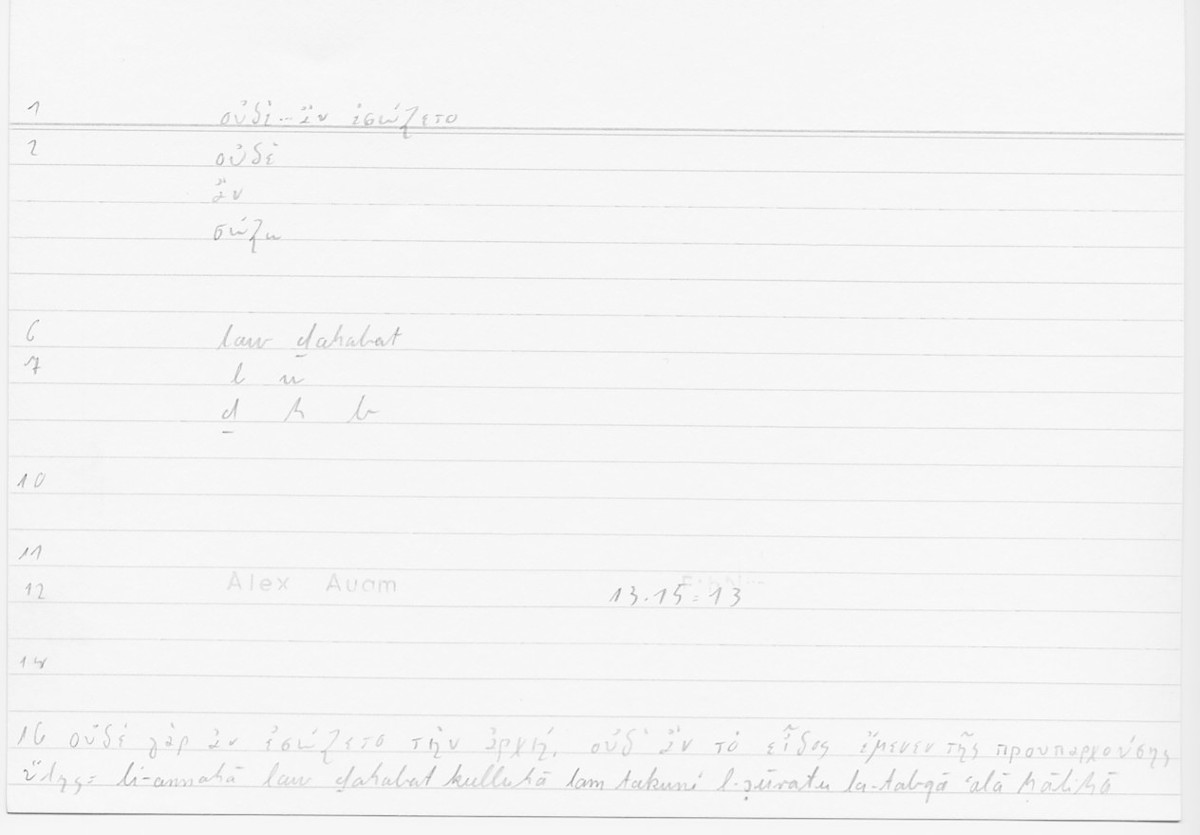 1 οὐδὲ...ἂν ἐσώζετο
2 οὐδέ
ἄν
σώζω
6 law ḏahabat
7 l w
ḏ h b
10
11
12 Alex Auam 13.15=13
14
16 οὐδὲ γὰρ ἂν ἐσώζετο τὴν ἀρχή, οὐδ' ἂν τὸ εἶδος ἔμενεν τῆς προυπαρχούσης
ὕλης = li-annahā law ḏahabat kulluhā lam takuni l-ṣūratu la-tabqā ʿalā ḥālihā